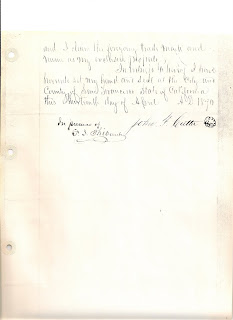 and I claim the foregoing Trade Mark and
name as my exclusive property.
In testimony whereof I have
hereunto set my hand and seal at the City and
County of San Francisco State of California
this day of April A.D. 1870
In presence of
John F. Cutter